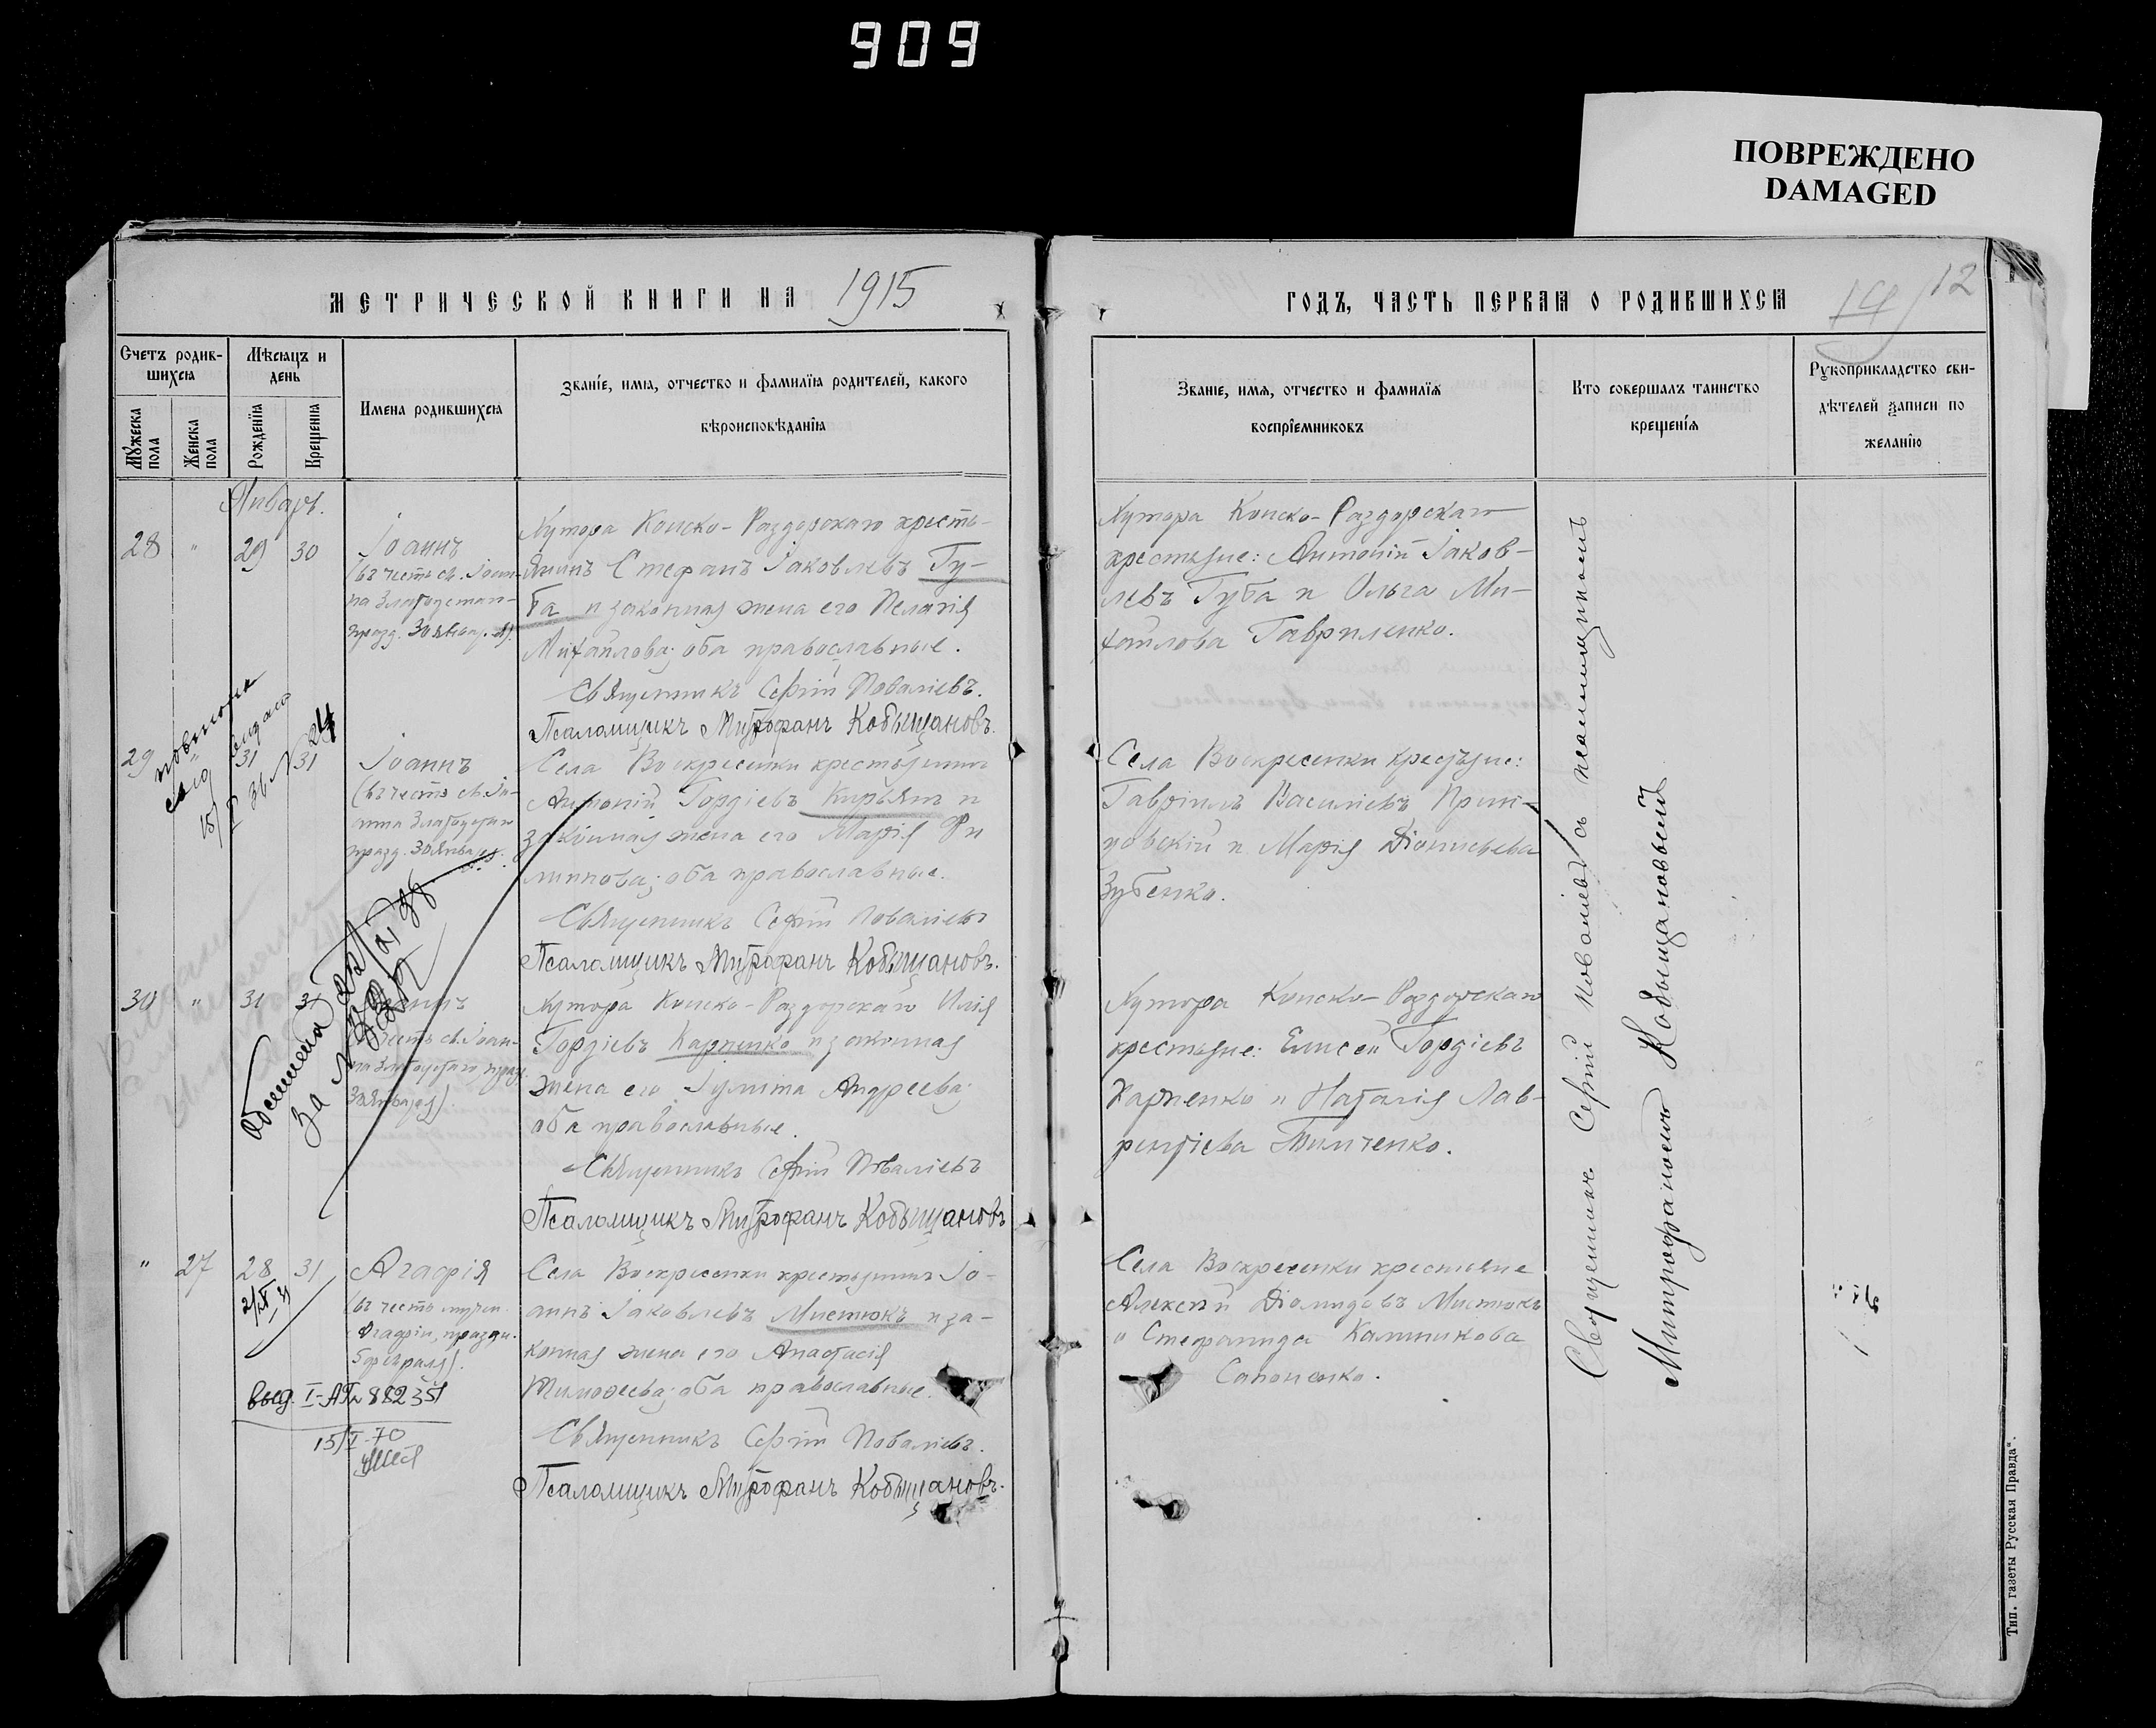 909
ПОВРЕЖДЕНО
DAMAGED
МЕТРИЧЕСКОЙ КНИГИ НА 1915
ГОДЪ, ЧАСТЬ ПЕРВАЯ О РОДИВШИХСЯ
14 12
Счетъ родив-
шихся
Мѣсяцъ и
день
Мужеска
пола
Женска
пола
Рожденїя
Крещенїя
Имена родившихся
Званїе, имя, отчество и фамилїя родителей, какого
вѣроисповѣданїя
Званїе, имя, отчество и фамилїя
воспрїемниковъ
Кто совершалъ таинство
крещенїя
Рукоприкладство сви-
дѣтелей записи по
желанїю
Январь.
28 " 29 30
Іоаннъ
(въ честь св. Іоан-
на Златоустаго
празд. 30 января).
Хутора Конско-Раздорскаго кресть-
янинъ Стефанъ Іаковлевъ Гу-
ба и законная жена его Пелагія
Михайлова; оба православные.
Священникъ Сергій Поваліевъ.
Псаломщикъ Митрофанъ Кобыщановъ.
Хутора Конско-Раздорскаго
крестьяне: Антоній Іаков-
левъ Губа и Ольга Ми-
хайлова Гавриленко.
29 " 31 31
Іоаннъ
(въ честь св. Іо-
анна Златоустаго
празд. 30 января).
Села Воскресенки крестьянинъ
Антоній Гордіевъ Кирьянъ и
законная жена его Марія Фи
липпова; оба православные.
Священникъ Сергій Поваліевъ
Псаломщикъ Митрофанъ Кобыщановъ.
Села Воскресенки крестьяне:
Гавріилъ Василіевъ
и Марія Діонисьева
Зубенко.
30 " 31 31
Іоаннъ
честь св. Іоан-
на Златоустаго, празд.
30 января).
Хутора Конско-Раздорскаго Илія
Гордіевъ Карпенко и законная
жена его Іулита Андреева;
оба православные.
Священникъ Сергій Поваліевъ
Псаломщикъ Митрофанъ Кобыщановъ
Хутора Конско-Раздорскаго
крестьяне: Елисей Гордіевъ
Карпенко и Наталія Лав-
рентіева Тимченко.
" 27 28 31
Агафія
(въ честь мучен.
Агафіи, праздн.
5 февраля).
Села Воскресенки крестьянинъ Іо-
аннъ Іаковлевъ Мистюкъ и за-
конная жена его Анастасія
Тимофеева; оба православные.
Священникъ Сергій Поваліевъ.
Псаломщикъ Митрофанъ Кобыщановъ.
Села Воскресенки крестьяне
Алексій Діомидовъ Мистюкъ
и Стефанида Калиникова
Сапоненко.
выд. I-АП № 882351
15/I-70
Священникъ Сергій Поваліевъ съ псаломщикомъ
Митрофаномъ Кобыщановымъ
Тип. газеты Русская Правда".